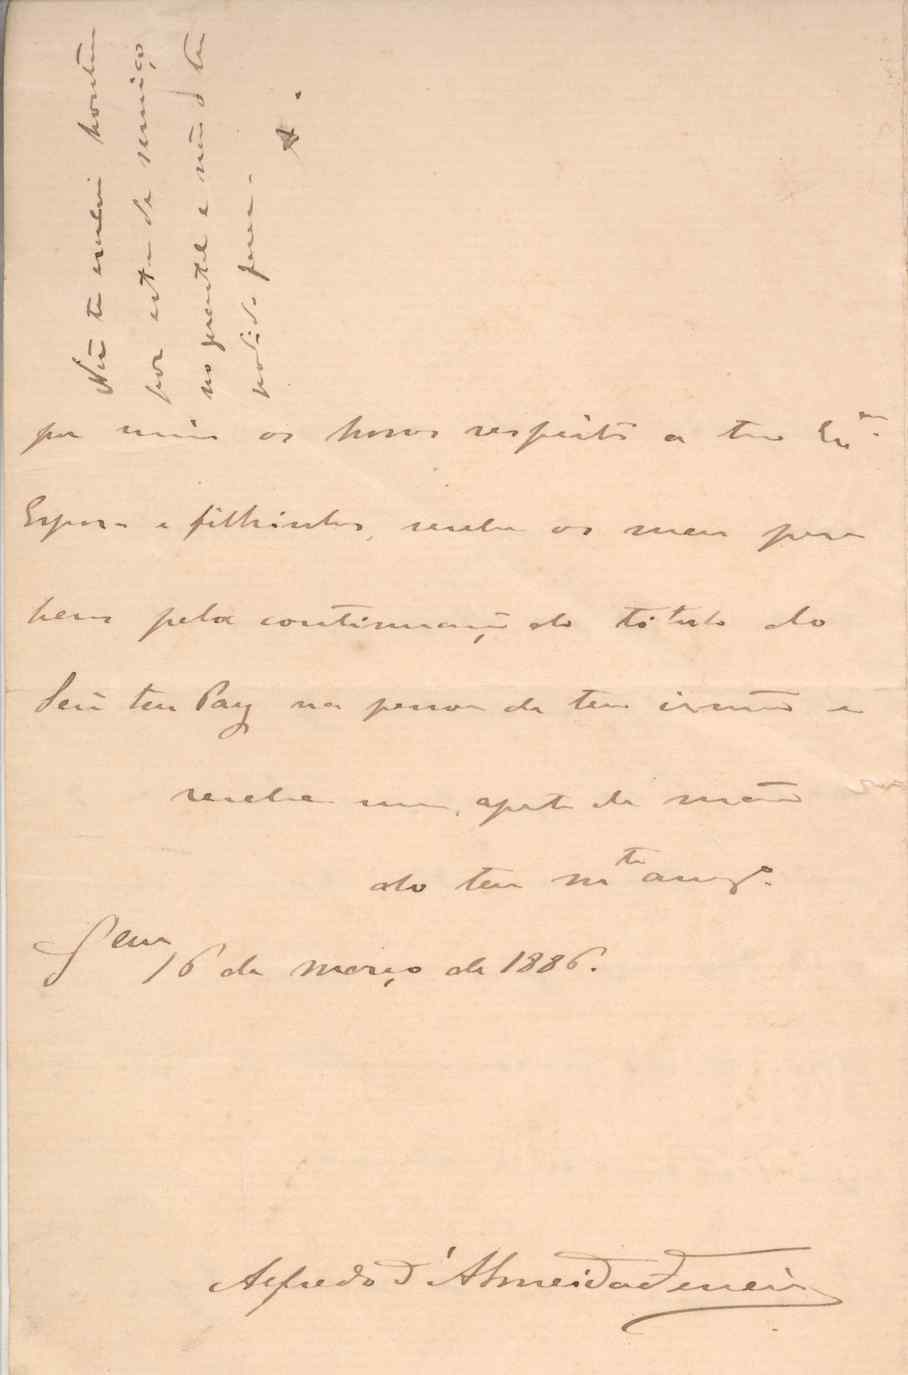 Não te escrevi hontem
por estar de serviço
no quartel e não o ter
podido fazer.
A.
por mim os nossos respeitos a tua Exma.
Esposa e filhinhos, recebe os meus para
bens pela continuação do titulo do
Senr teu Pay na pessoa de teu irmão e
recebe um aperto de mão
do teu mto amgo.
16 de março de 1886.
Alfredo d'Almeida Ferreira